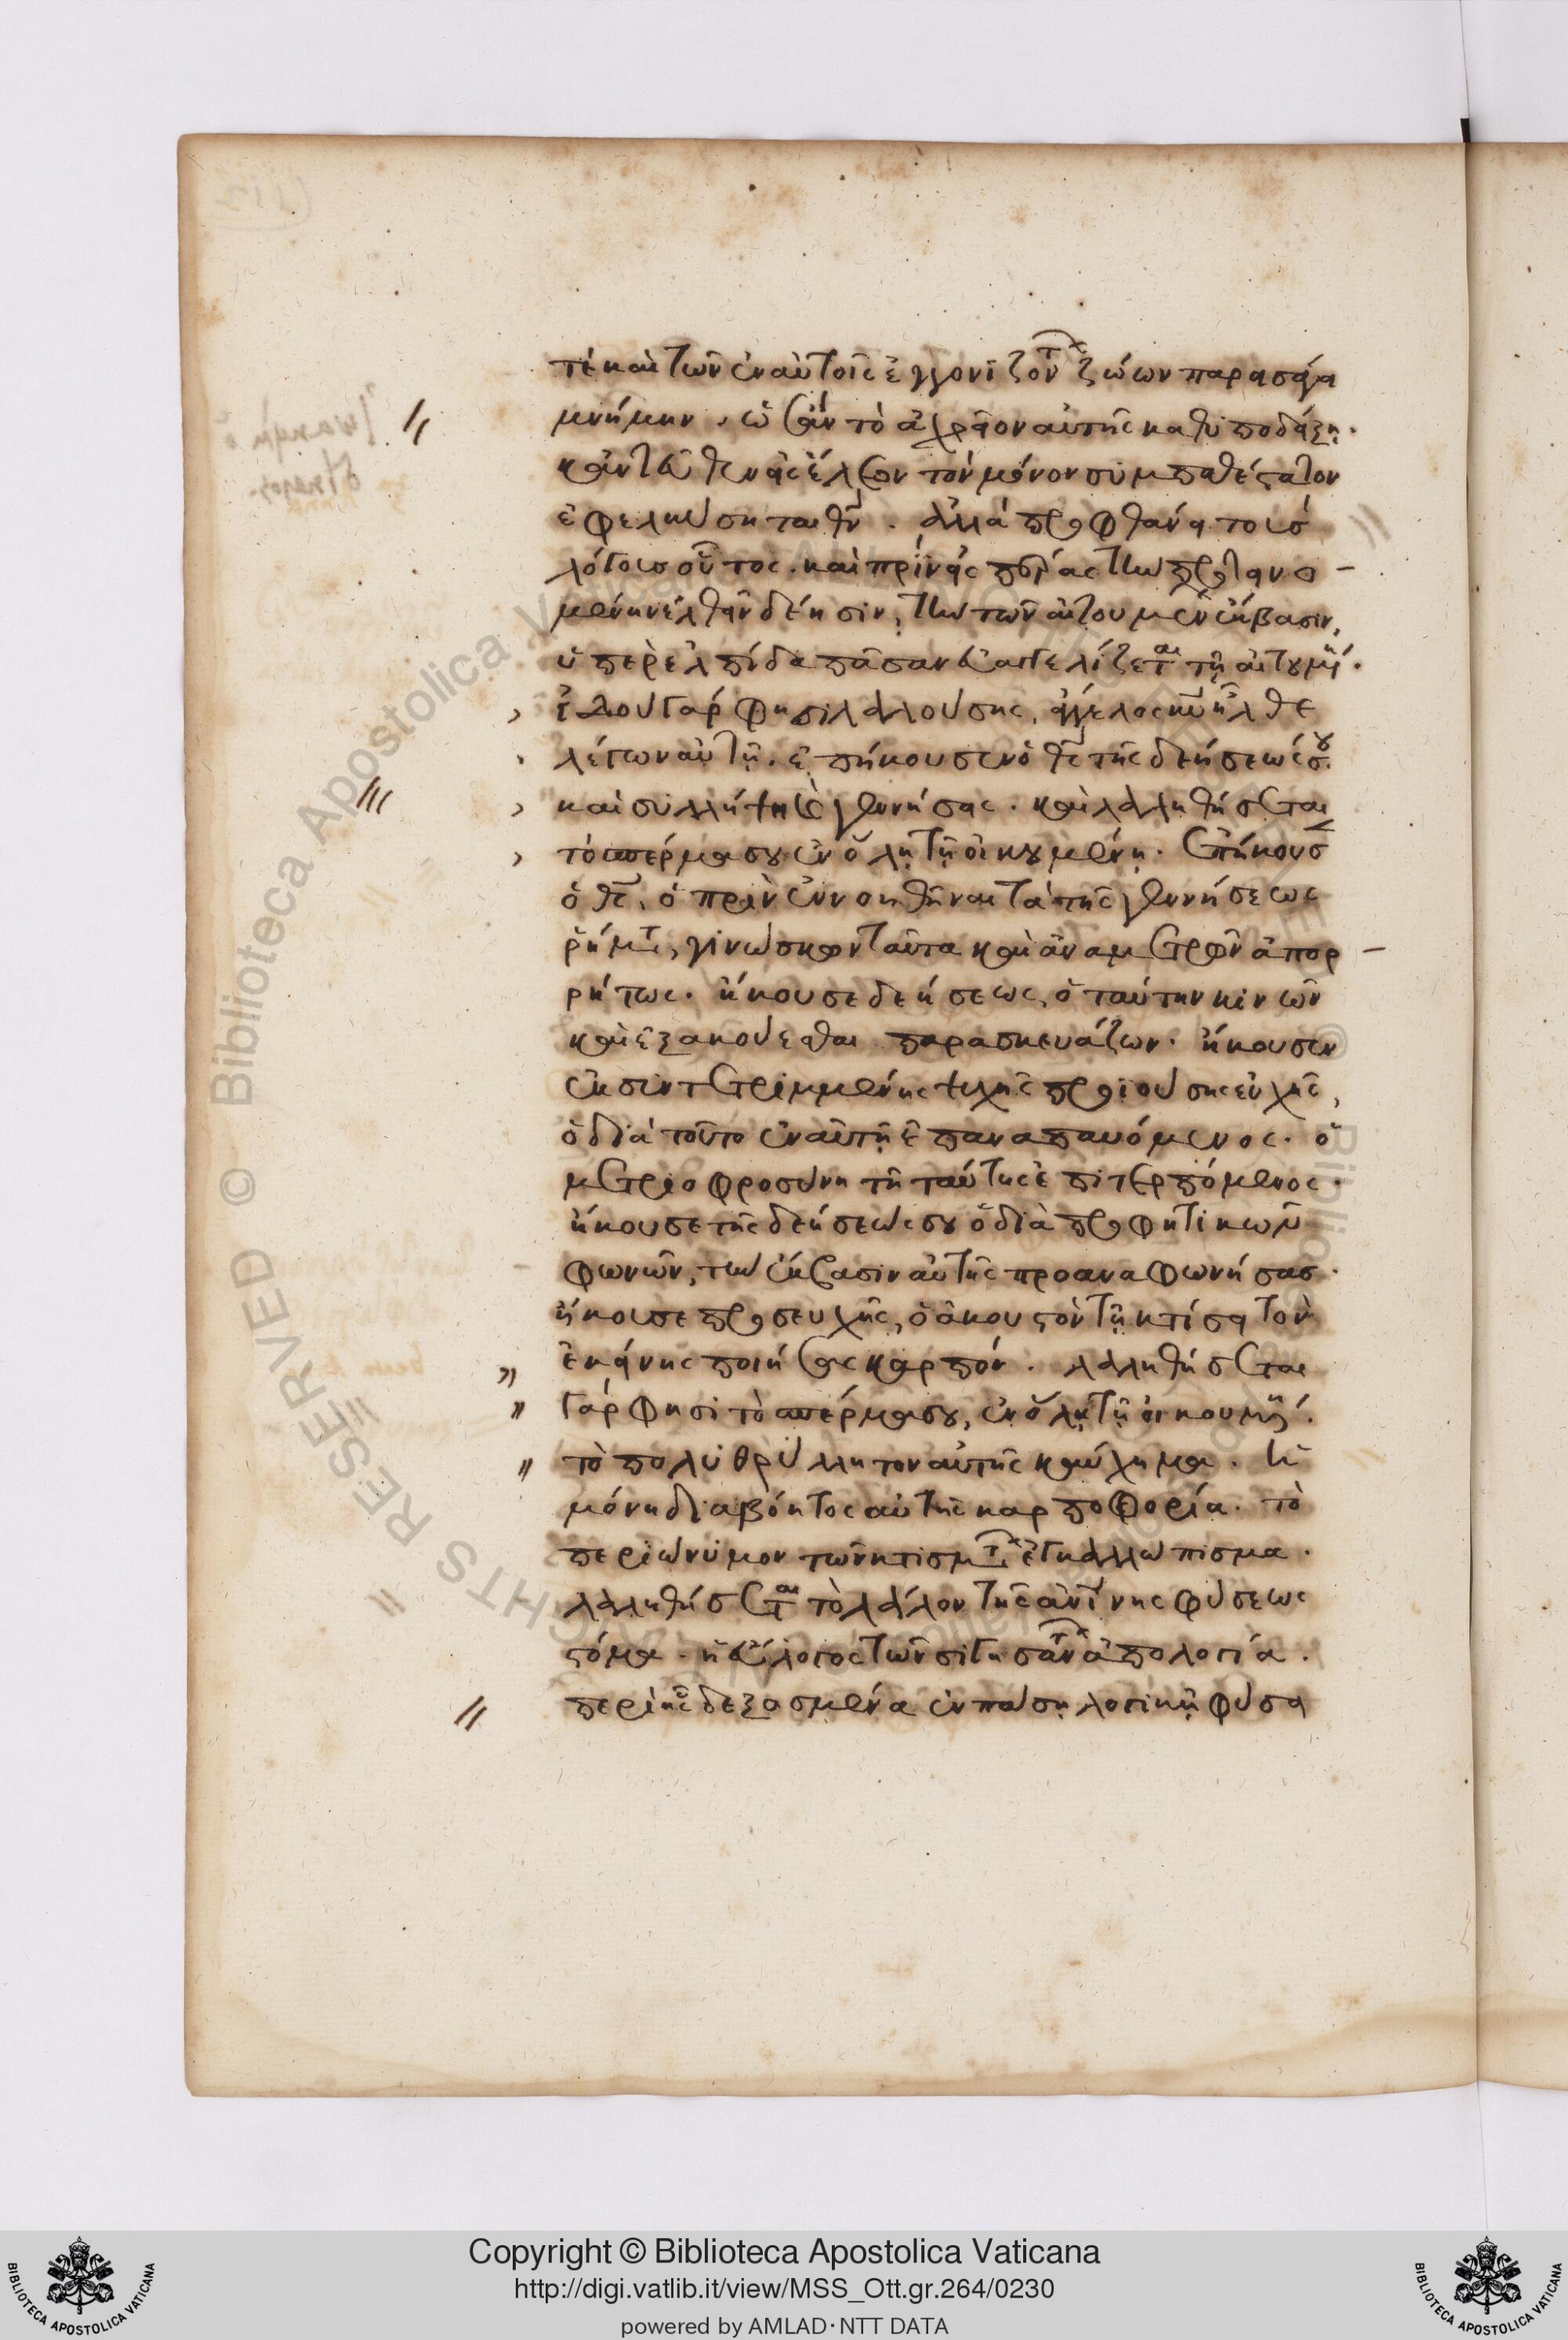 τὲ καὶ τῶν ἐν αὐτοῖς ἐγγονιζόντ ζώων παρασάγα
μνήμην. ὡς ἂν τὸ ἀχρεῖον αὐτῆς καθυποδείξη.
κἀντεῦθεν εἰς ἔλεον τὸν μόνον συμπαθέστατον
ἐφελκύσηται θν. ἀλλὰ προφθάνει τοισ
λόγοισ οὗτος. καὶ πρὶν εἰς πέρας τὴν προτεινο-
μένην ἐλθεῖν δέησιν, τὴν τῶν αἰτουμένων ἔκβασιν,
ὑπὲρ ἐλπίδα πᾶσαν εὐαγγελίζεται τῇ αἰτουμέν.
ἰδοὺ γάρ φησι λαλούσης, ἄγγελος κυ ἦλθε
λέγων αὐτῇ. ἐπήκουσεν ὁ θς τῆς δεήσεώς σου.
καὶ συλλήψη καὶ γεννήσεις. καὶ λαληθήσεται
τὸ σπέρμα σου ἐν ὅλῃ τῇ οἰκουμένῃ. ἐπήκουσ
ὁ θς, ὁ πρὶν ἐννοηθῆναι τὰ τῆς γεννήσεως
ῥήματ, γινώσκων ταῦτα καὶ ἀναμετρῶν ἀπορ-
ρήτως. ἤκουσε δεήσεως, ὁ ταύτην κινῶν
καὶ ἐξακούεσθαι παρασκευάζων. ἤκουσεν
ἐκ συντετριμμένης ψυχῆς προϊούσης εὐχῆς,
ὁ διὰ τοῦτο ἐν αὐτῇ ἐπαναπαυόμενος. ὁ
μετριοφροσύνη τῇ ταύτης ἐπιτερπόμενος.
ἤκουσε τῆς δεήσεώς σου ὁ διὰ προφητικῶν
φωνῶν, τὴν ἔκβασιν αὐτῆς προαναφωνήσασ.
ἤκουσε προσευχῆς, ὁ ἀκουστὸν τῇ κτίσει τὸν
ἐκείνης ποιήσας καρπόν. λαληθήσεται
γάρ φησι τὸ σπέρμα σου, ἐν ὅλῃ τῇ οἰκουμέν.
τὸ πολυθρύλλητον αὐτῆς καύχημα. ἡ
μόνη διαβόητος αὐτῆς καρποφορία. τὸ
περιώνυμον τῶν κτισμάτ ἐγκαλλώπισμα.
λαληθήσεται τὸ λάλον τῆς ἀνίνης φύσεως
στόμα. ἡ εὔλογος τῶν σιγησάντ ἀπολογία.
περὶ ἧς δεδοξασμένα ἐν πάσῃ λογικῇ φύσει
Copyright © Biblioteca Apostolica Vaticana
http://digi.vatlib.it/view/MSS_Ott.gr.264/0230
powered by AMLAD·NTT DATA